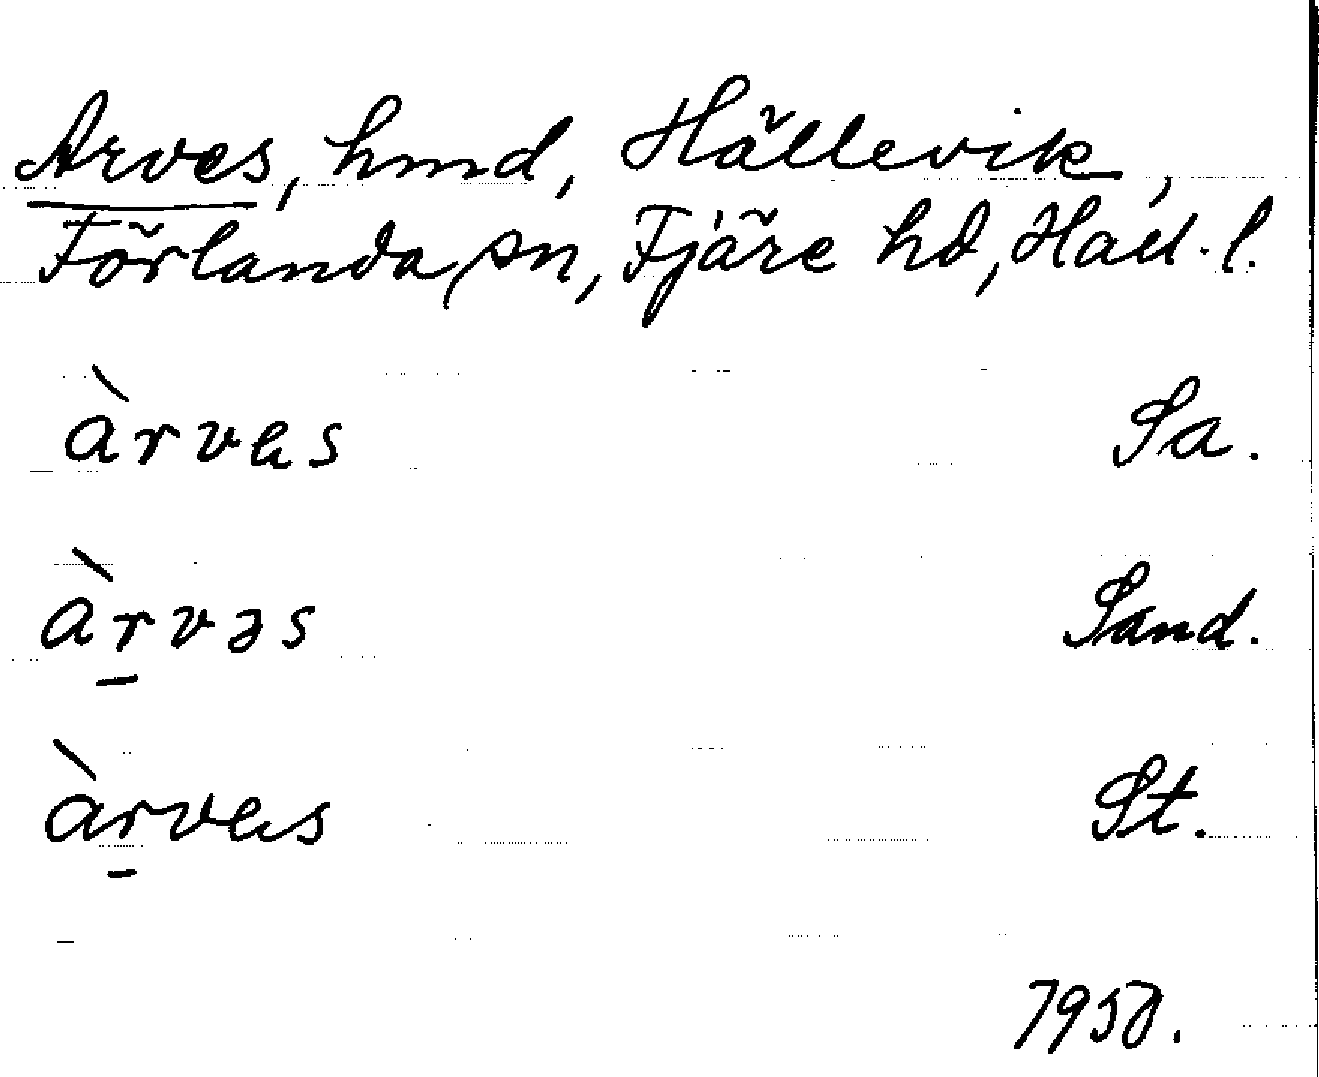 Arves, hmd, Hällevik,
Förlanda sn, Fjäre hd, Hall. l.
àrvəs Sa.
àrvəs Sand.
àrvəs St.
1950.